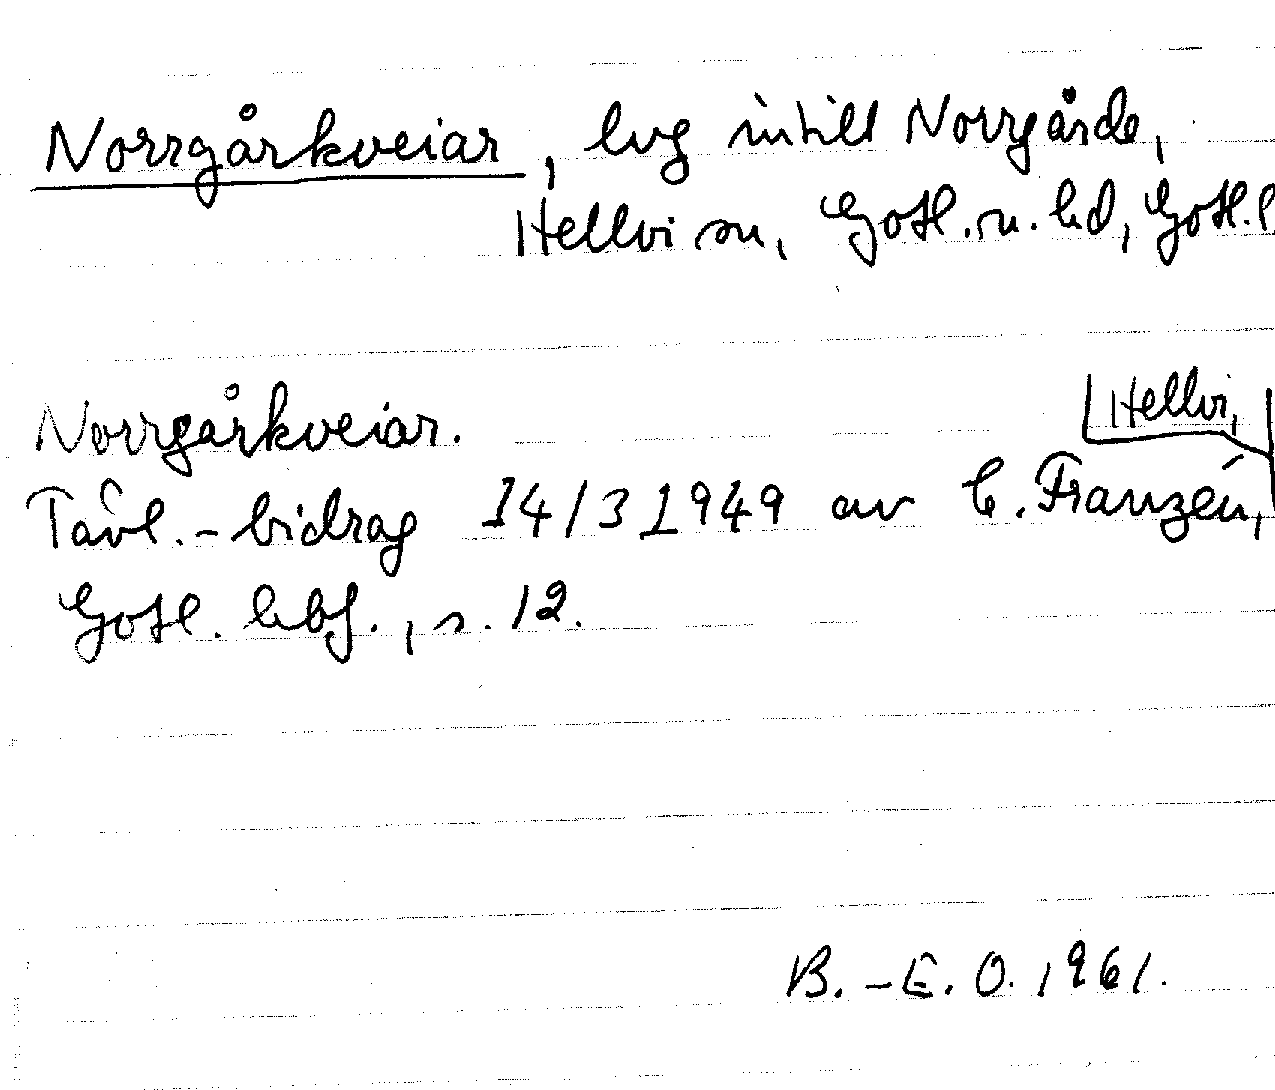 Norrgårkveiar, lvg intill Norrgårde,
Hellvi sn, Gotl. n. hd, Gotl. l
Norrgårkveiar.
Hellvi,
Tävl.-bidrag 14/3 1949 av C. Franzén,
Gotl. hbf., s. 12.
B.-E. O. 1961.